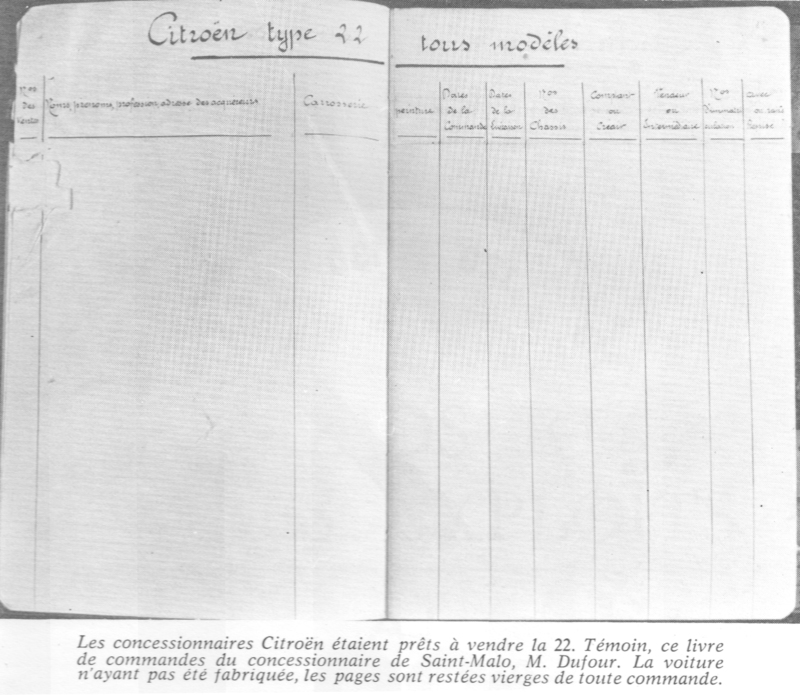 Citroën type 22 tous modèles
Nos des Ventes
Noms, prénoms, profession, adresse des acquéreurs
Carrosserie
peinture
Dates de la Commande
Dates de la livraison
Nos des Chassis
Comptant ou Crédit
Vendeur ou Intermédiaire
Nos
avec ou sans Reprise
Les concessionnaires Citroën étaient prêts à vendre la 22. Témoin, ce livre
de commandes du concessionnaire de Saint-Malo, M. Dufour. La voiture
n'ayant pas été fabriquée, les pages sont restées vierges de toute commande.